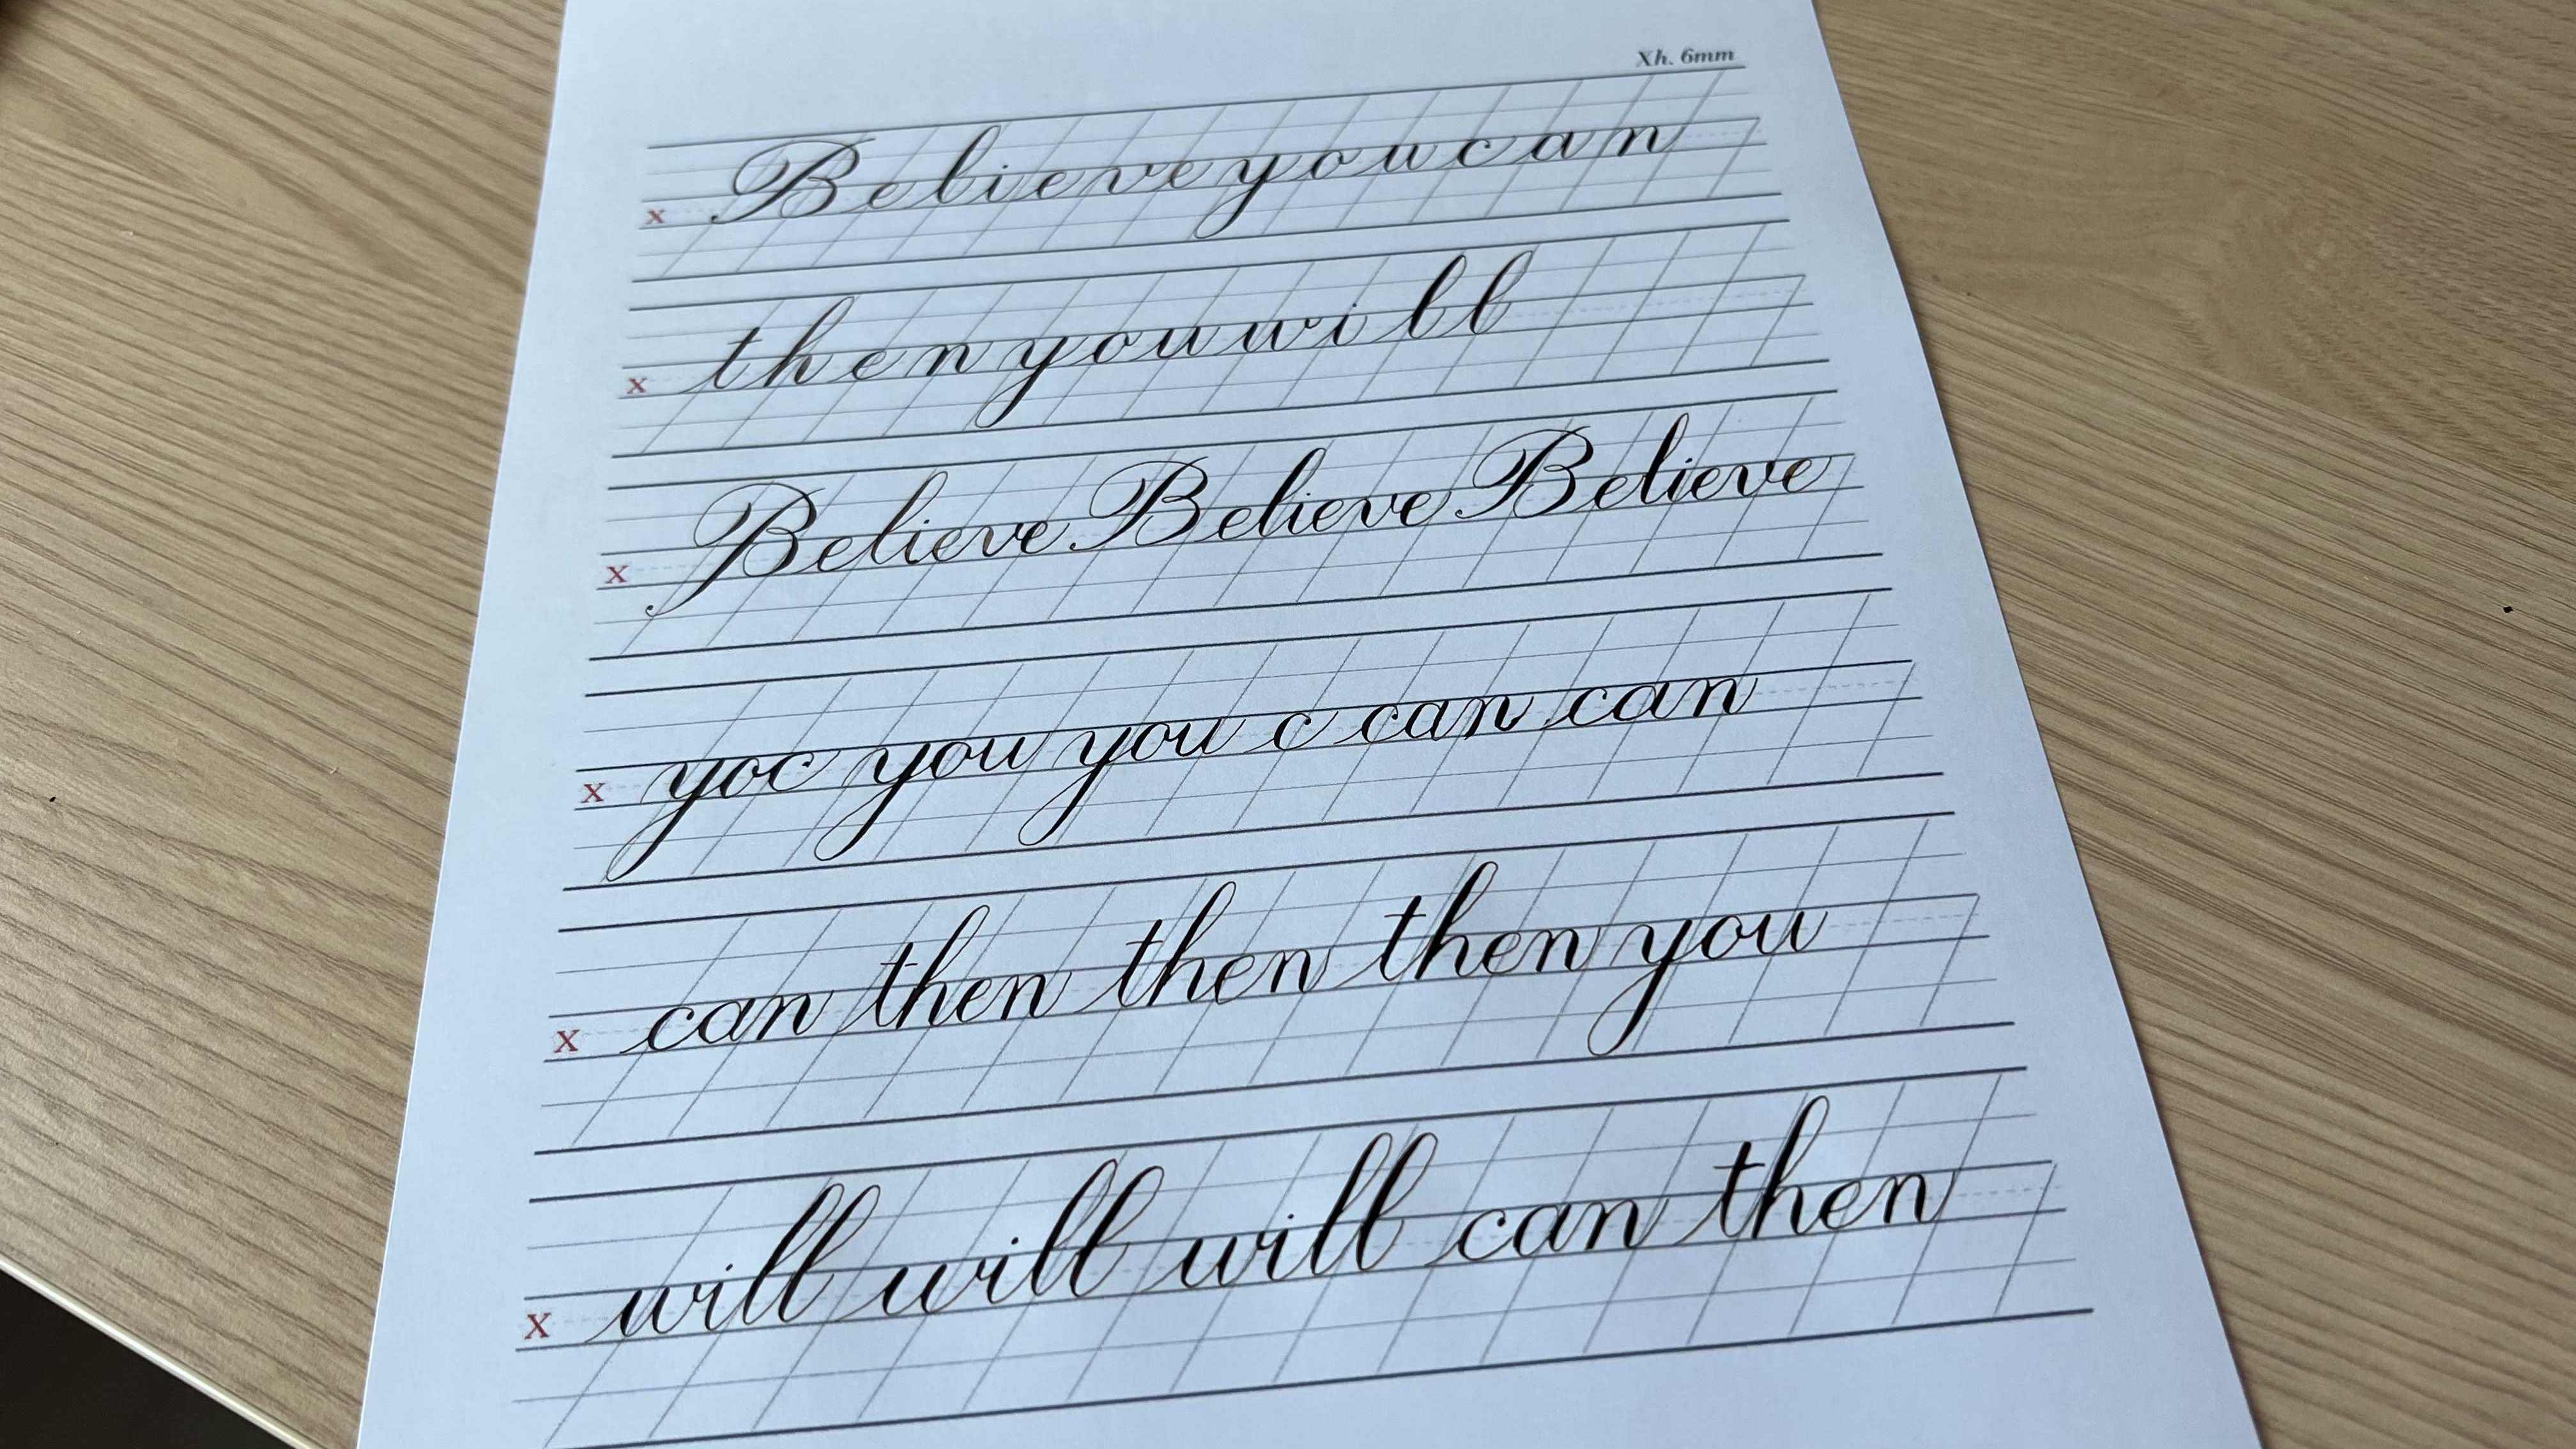 Xh. 6mm
x Believe you can
x then you will
x Believe Believe Believe
x yoc you you c can can
x can then then then you
x will will will can then